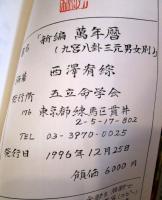 「新編 萬年暦」
(九宮八卦三元男女別)
西澤有綜
発行所 五立命学会
176 東京都練馬区貫井
2-5-17-802
TEL 03-3970-0025
発行日 1996年12月25日
領価 6000円